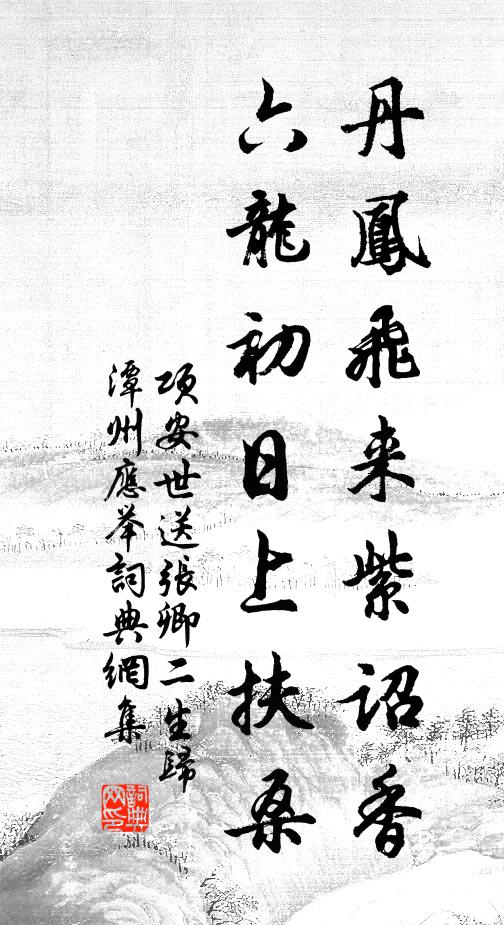 丹鳳飛来紫詔香
六龍初日上扶桑
項安世送張卿二生歸
潭州應举詞典網集
詞典网印